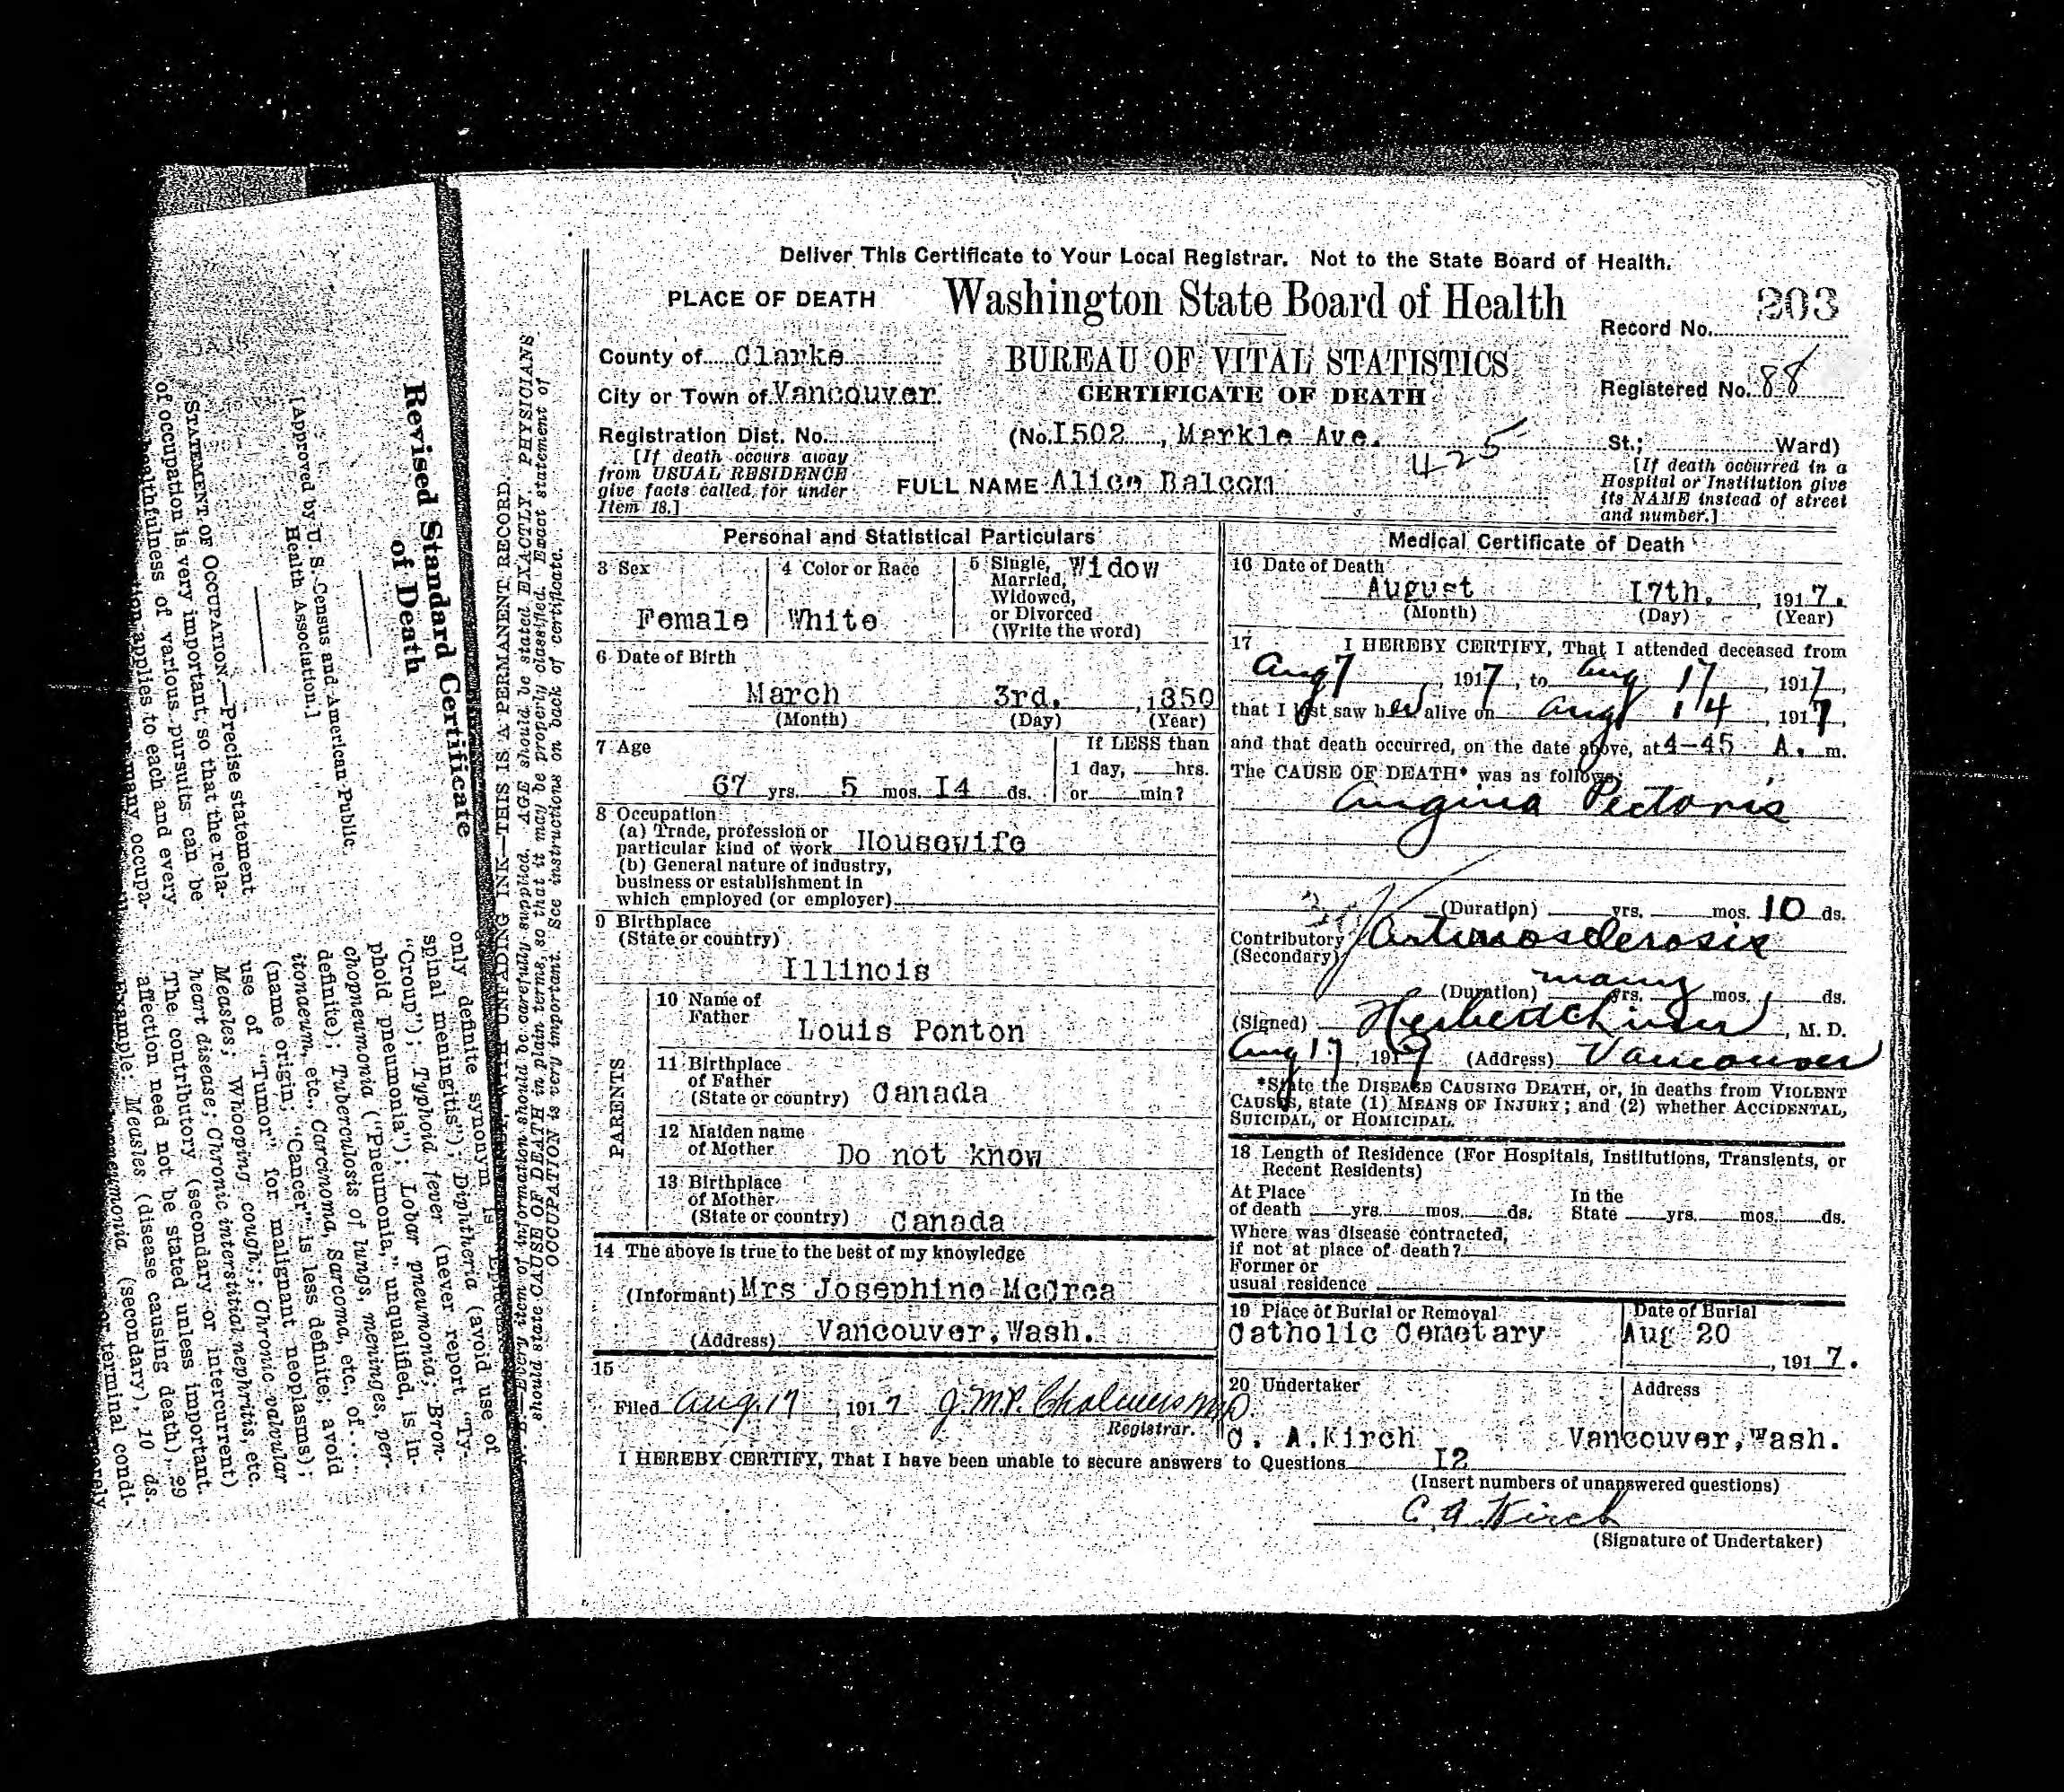 Deliver This Certificate to Your Local Registrar. Not to the State Board of Health.
PLACE OF DEATH
Washington State Board of Health
203
Record No.
County of Clarke
BUREAU OF VITAL STATISTICS
City or Town of Vancouver.
CERTIFICATE OF DEATH
Registered No. 88
Registration Dist. No.
(No. I502, Markle Ave. 425 St.; Ward)
[If death occurs away
from USUAL RESIDENCE
give facts called for under
Item 18.]
FULL NAME Alice Balcom
[If death occurred in a
Hospital or Institution give
its NAME instead of street
and number.]
Personal and Statistical Particulars
3 Sex
Female
4 Color or Race
White
5 Single, Widow
Married,
Widowed,
or Divorced
(Write the word)
6 Date of Birth
March 3rd. , 1850
(Month) (Day) (Year)
7 Age
67 yrs. 5 mos. I4 ds.
If LESS than
1 day, hrs.
or min?
8 Occupation
(a) Trade, profession or
particular kind of work Housewife
(b) General nature of industry,
business or establishment in
which employed (or employer)
9 Birthplace
(State or country)
Illinois
PARENTS
10 Name of
Father
Louis Ponton
11 Birthplace
of Father
(State or country) Canada
12 Maiden name
of Mother Do not know
13 Birthplace
of Mother
(State or country) Canada
14 The above is true to the best of my knowledge
(Informant) Mrs Josephine McCrea
(Address) Vancouver, Wash.
15
Filed Aug. 17, 1917 J.M.P. Chalmers MD
Registrar.
Medical Certificate of Death
16 Date of Death
August I7th. , 1917.
(Month) (Day) (Year)
17 I HEREBY CERTIFY, That I attended deceased from
Aug 7, 1917, to Aug 17, 1917,
that I last saw her alive on Aug 14, 1917,
and that death occurred, on the date above, at 4-45 A. m.
The CAUSE OF DEATH* was as follows:
Angina Pectoris
(Duration) yrs. mos. 10 ds.
Contributory Arteriosclerosis
(Secondary)
(Duration) many yrs. mos. ds.
(Signed) , M. D.
Aug 17, 1917 (Address) Vancouver
*State the DISEASE CAUSING DEATH, or, in deaths from VIOLENT
CAUSES, state (1) MEANS OF INJURY; and (2) whether ACCIDENTAL,
SUICIDAL, or HOMICIDAL.
18 Length of Residence (For Hospitals, Institutions, Transients, or
Recent Residents)
At Place
of death yrs. mos. ds.
In the
State yrs. mos. ds.
Where was disease contracted,
if not at place of death?
Former or
usual residence
19 Place of Burial or Removal
Catholic Cemetary
Date of Burial
Aug 20
, 1917.
20 Undertaker
C. A. Kirch
Address
Vancouver, Wash.
I HEREBY CERTIFY, That I have been unable to secure answers to Questions I2
(Insert numbers of unanswered questions)
C. A. Kirch
(Signature of Undertaker)
WITH UNFADING INK—THIS IS A PERMANENT RECORD.
Every item of information should be carefully supplied. AGE should be stated EXACTLY. PHYSICIANS
should state CAUSE OF DEATH in plain terms, so that it may be properly classified. Exact statement of
OCCUPATION is very important. See instructions on back of certificate.
Revised Standard Certificate
of Death
[Approved by U. S. Census and American Public
Health Association.]
STATEMENT OF OCCUPATION.—Precise statement
of occupation is very important, so that the rela-
healthfulness of various pursuits can be
applies to each and every
many occupa-
only definite synonym is
spinal meningitis"); Diphtheria (avoid use of
"Croup"); Typhoid fever (never report "Ty-
phoid pneumonia"); Lobar pneumonia; Bron-
chopneumonia ("Pneumonia," unqualified, is in-
definite); Tuberculosis of lungs, meninges, per-
itonaeum, etc., Carcinoma, Sarcoma, etc., of
(name origin; "Cancer" is less definite; avoid
use of "Tumor" for malignant neoplasms);
Measles; Whooping cough; Chronic valvular
heart disease; Chronic interstitial nephritis, etc.
The contributory (secondary or intercurrent)
affection need not be stated unless important.
Example: Measles (disease causing death), 29
(secondary), 10 ds.
terminal condi-